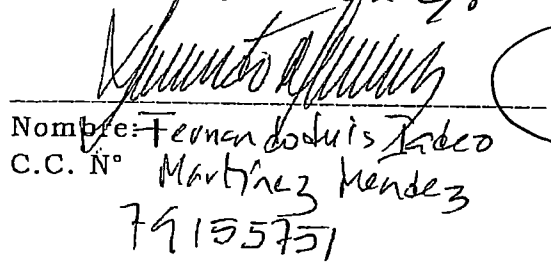 Nombre: Fernando Luis Tadeo
C.C. N° Martínez Mendez
79155751